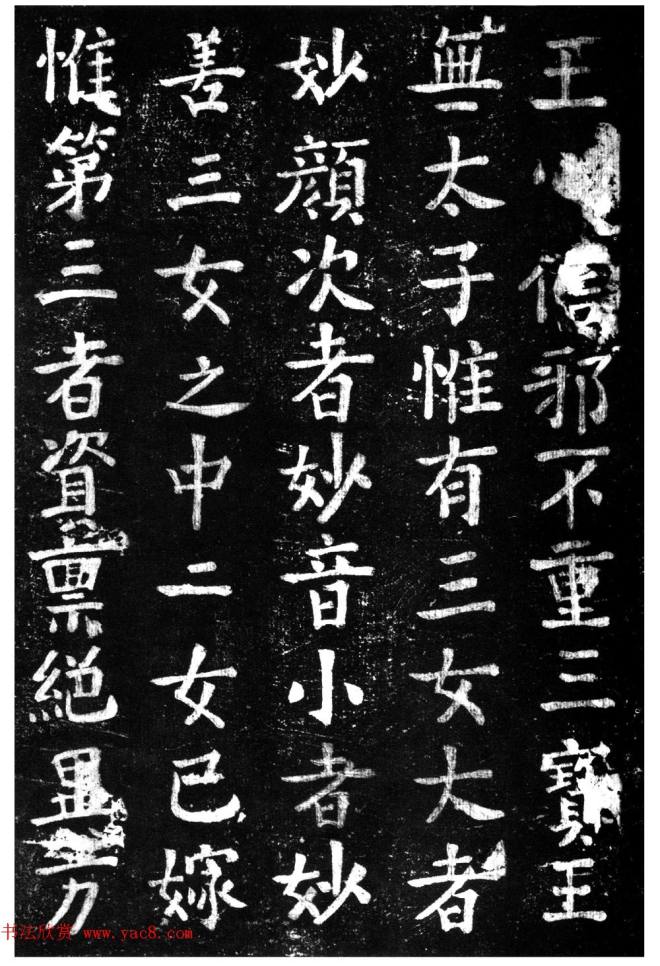 王信邪不重三寶王
無太子惟有三女大者
妙顏次者妙音小者妙
善三女之中二女已嫁
惟第三者資稟絕
书法欣赏 www.yac8.com